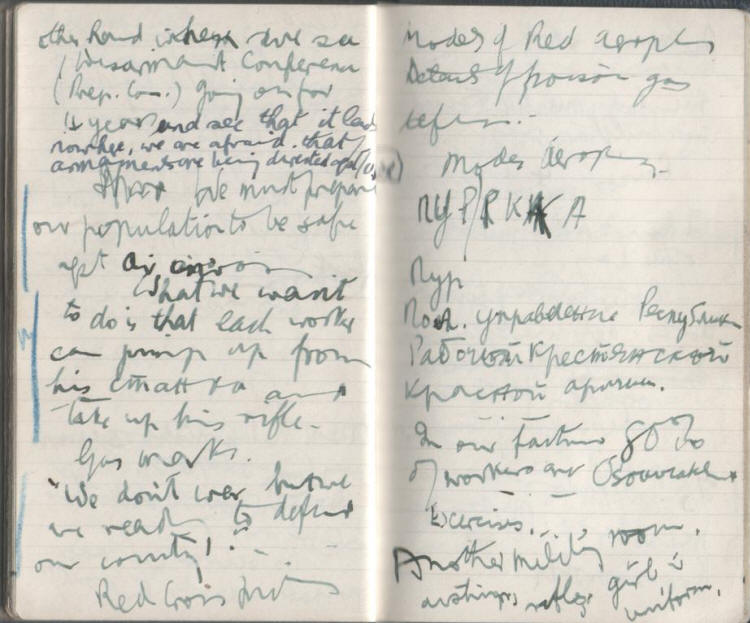 other hand when we see
/ Disarmament Conference
(Prep. Com.) going on for
4 years and see that it leads
nowhere, we are afraid that
armaments are being directed agst (us)
We must prepare
our population to be safe
agst air
What we want
to do is that each worker
can jump up from
his станка and
take up his rifle.
Gas masks.
"We don't want war but we
are ready to defend
our country!"
Red Cross
Models of Red aeroplanes
Details of poison gas
defence.
Model Aeroplanes.
ПУРРККА
Пур
Полит. управление Республики
Рабочей Крестянской
Красной армии.
In our factory 80%
of workers are Osoaviakhim
Exercises. room.
Another military
rifles girl in
uniform.